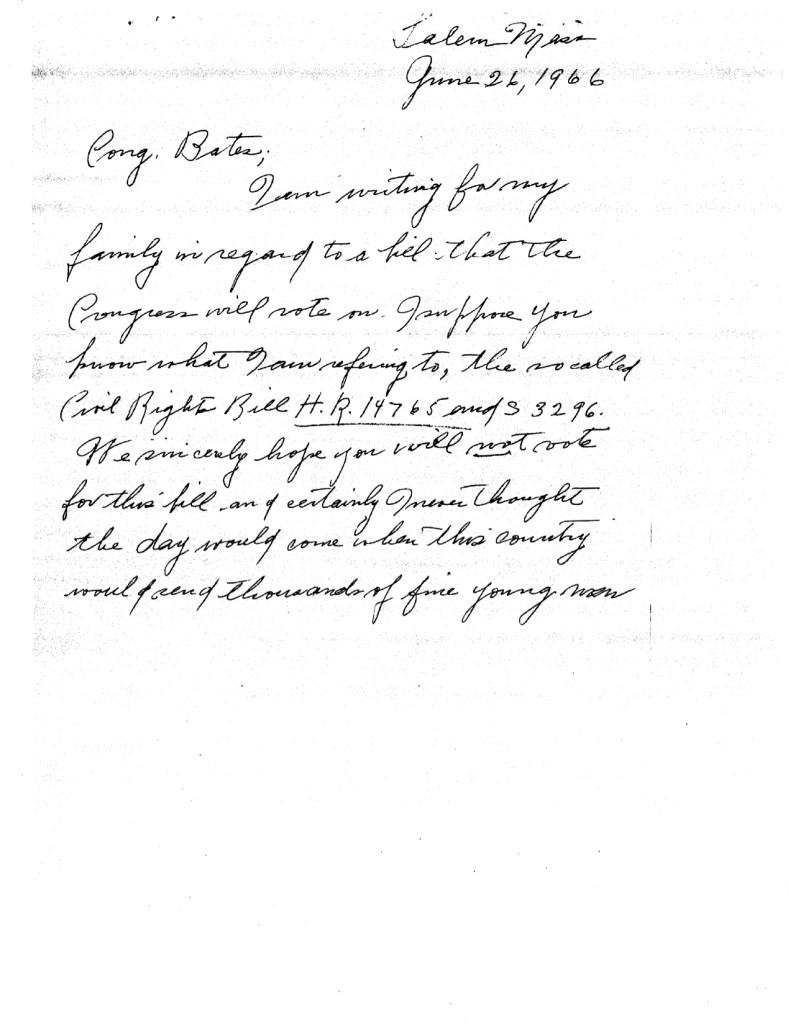 Salem Mass
June 26, 1966
Cong. Bates;
I am writing for my
family in regard to a bill that the
Congress will vote on. I suppose you
know what I am refering to, the so called
Civil Rights Bill H.R. 14765 and S 3296.
We sincerely hope you will not vote
for this bill and certainly I never thought
the day would come when this country
would send thousands of fine young men